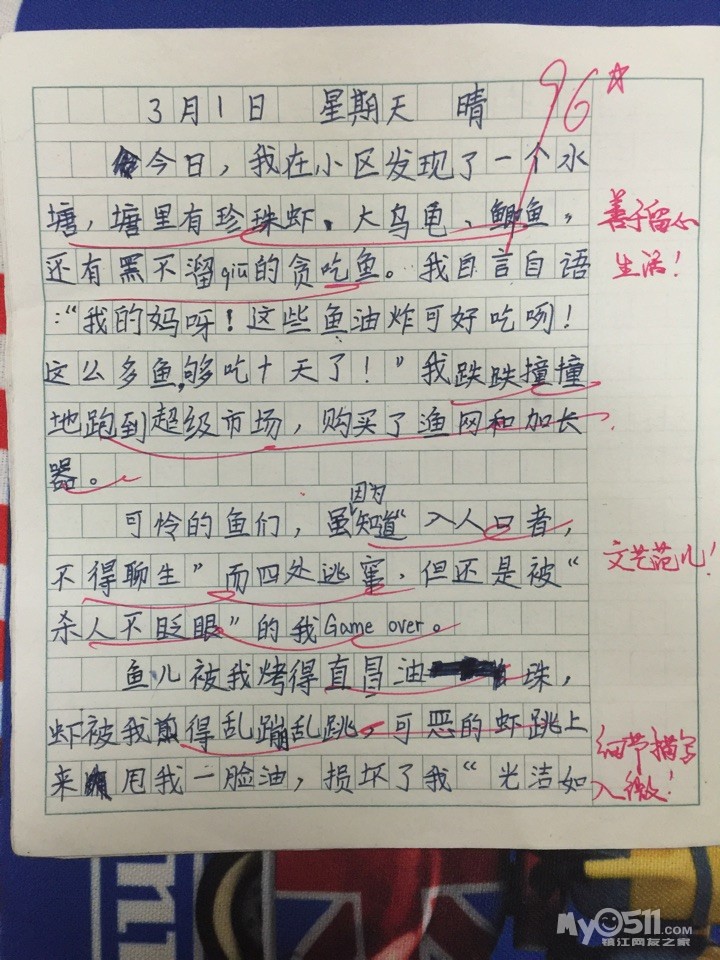 96
3月1日 星期天 晴
今日，我在小区发现了一个水
塘，塘里有珍珠虾、大乌龟、鲫鱼，
还有黑不溜qiu的贪吃鱼。我自言自语
：“我的妈呀！这些鱼油炸可好吃咧！
这么多鱼，够吃十天了！”我跌跌撞撞
地跑到超级市场，购买了渔网和加长
器。
可怜的鱼们，虽因为知道“入人口者，
不得聊生”而四处逃窜，但还是被“
杀人不眨眼”的我Game over。
鱼儿被我烤得直冒油珠，
虾被我煎得乱蹦乱跳，可恶的虾跳上
来甩我一脸油，损坏了我“光洁如
善于留心
生活！
文艺范儿！
细节描写
入微！
My0511.COM
镇江网友之家